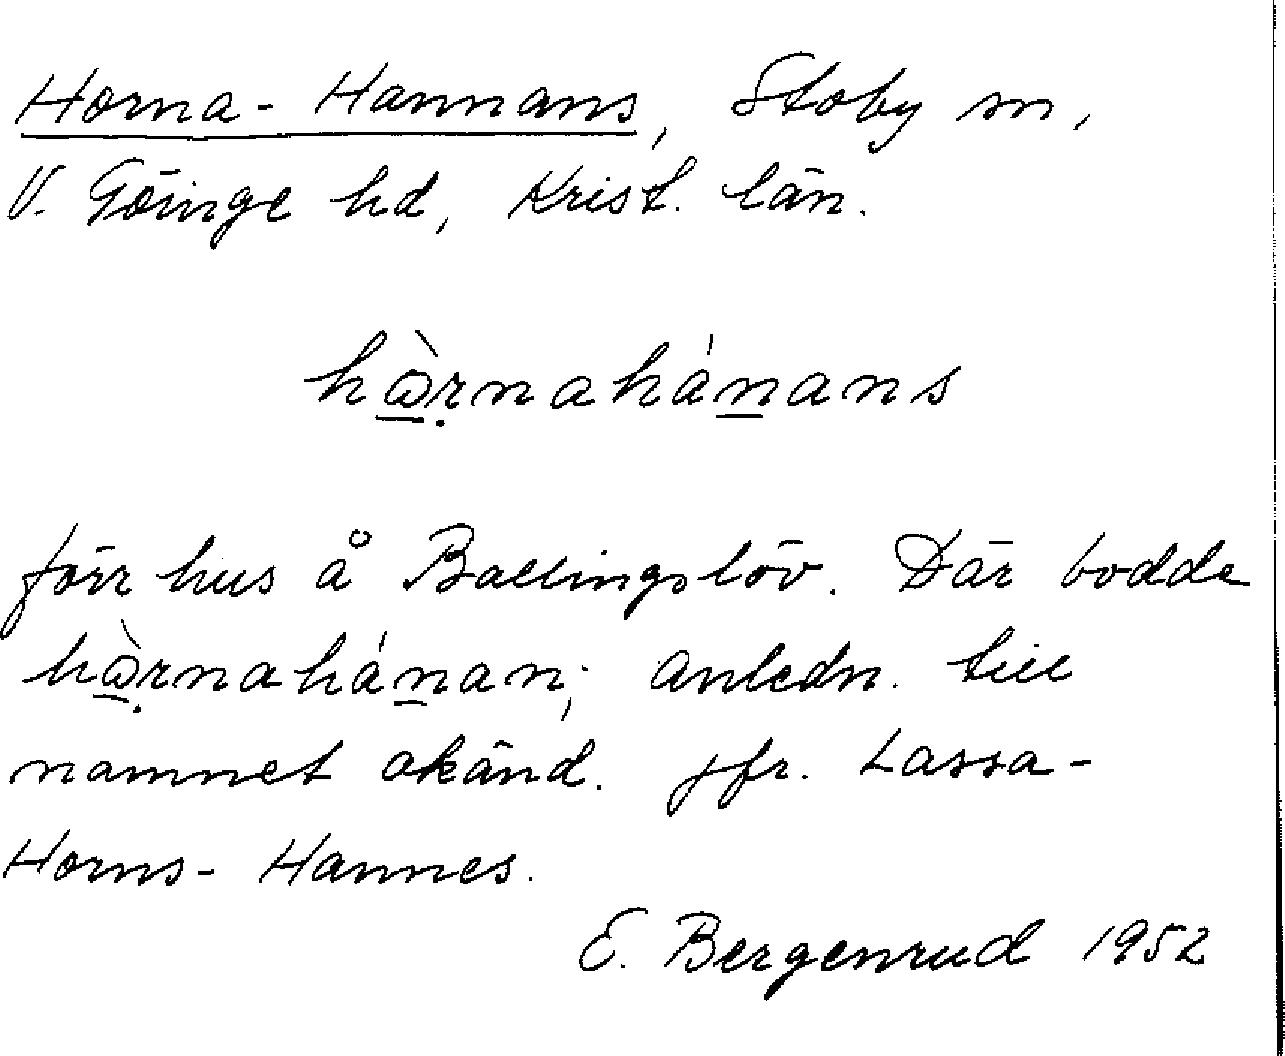 Horna-Hannans, Stoby sn,
V. Göinge hd, Krist. län.
hὼrnahánans
förr hus å Ballingslöv. Där bodde
hὼrnahánan; anledn. till
namnet okänd. Jfr. Lassa-
Horns-Hannes.
E. Bergenrud 1952